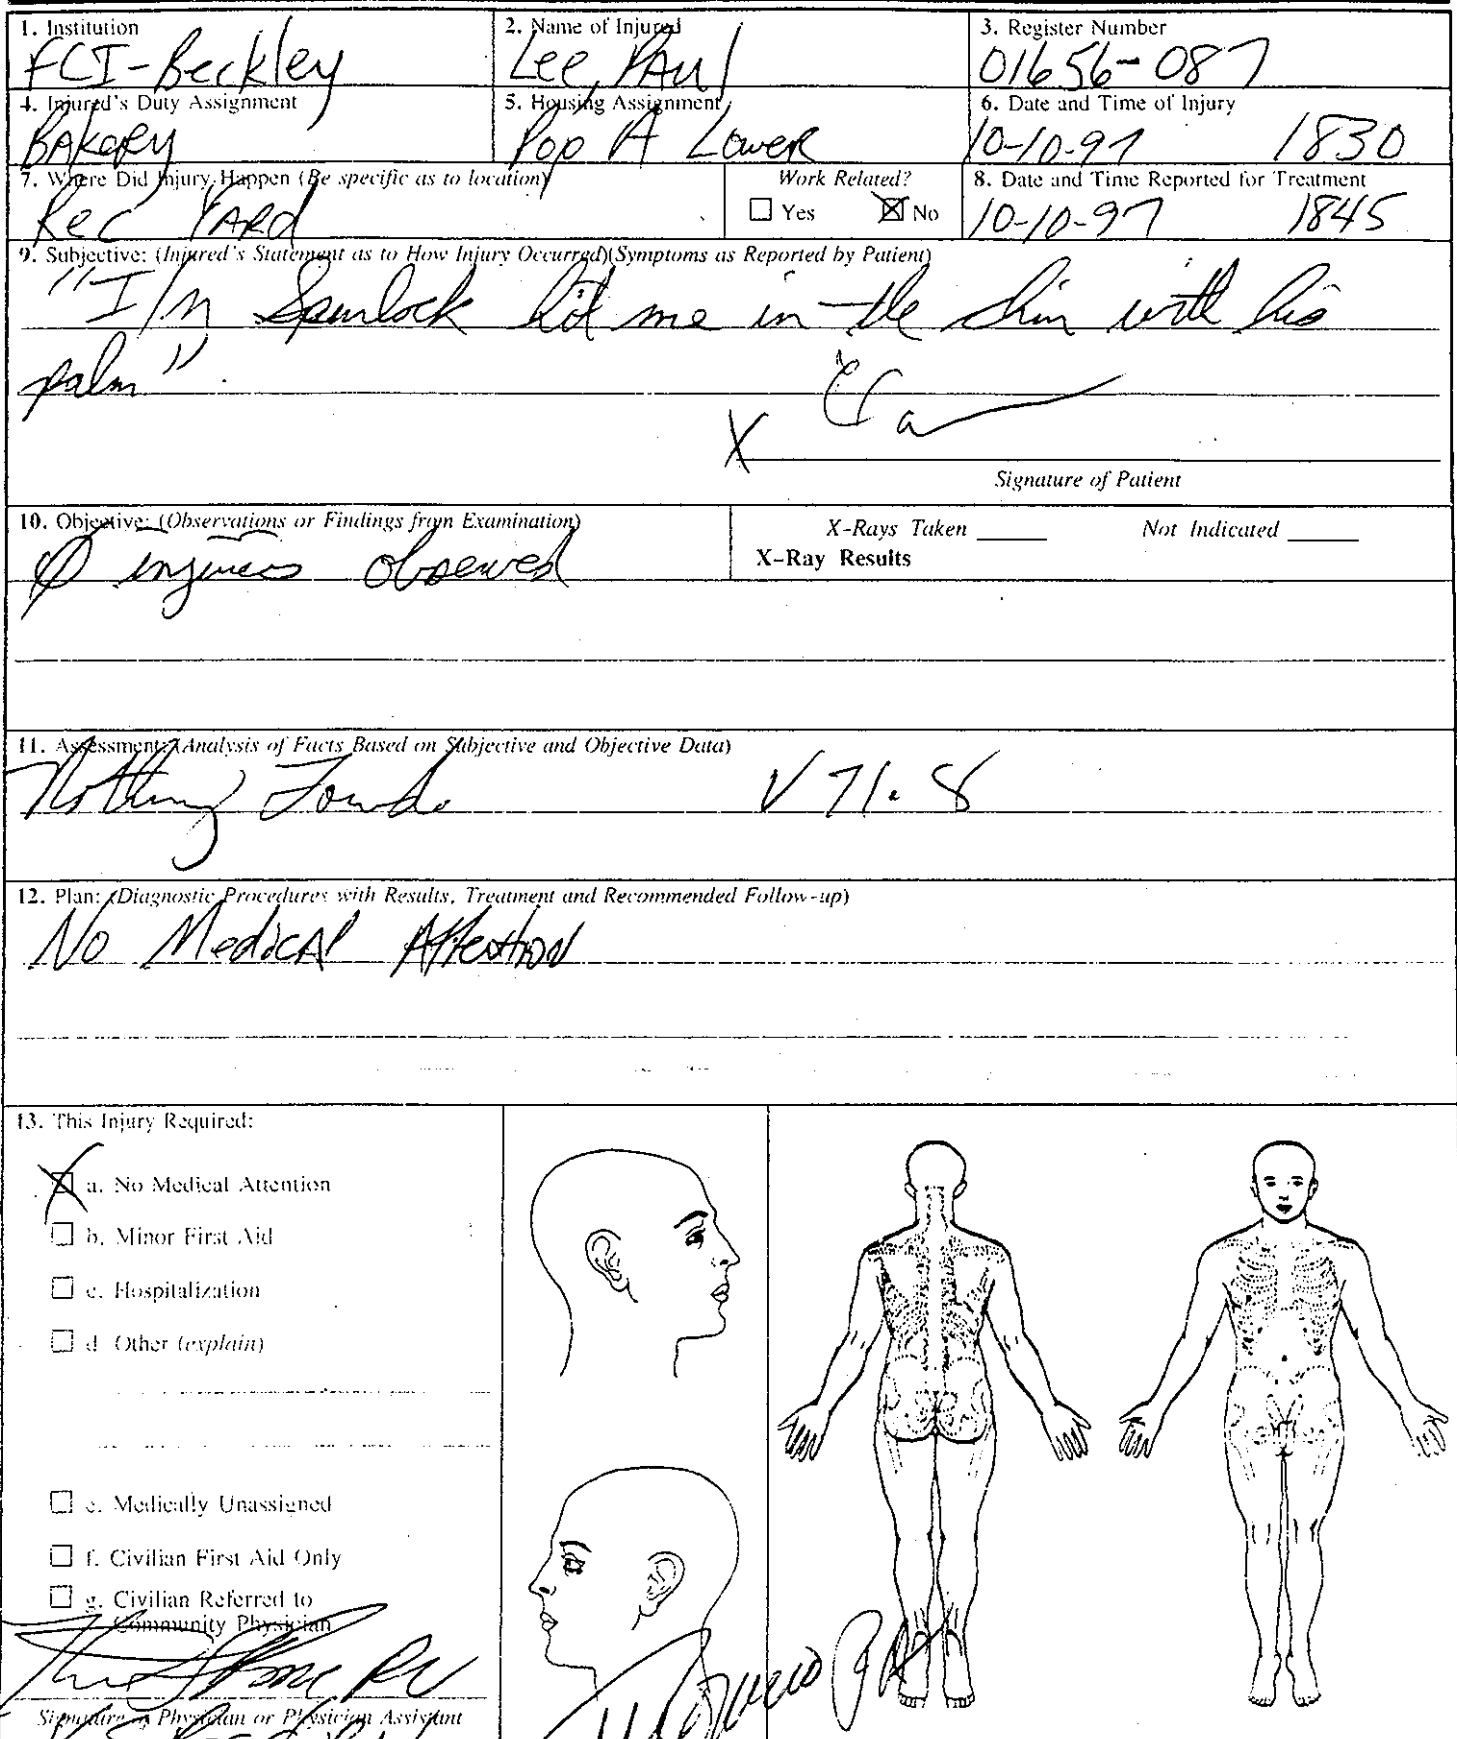 1. Institution
FCI-Beckley
2. Name of Injured
Lee, PAul
3. Register Number
01656-087
4. Injured's Duty Assignment
BAKERY
5. Housing Assignment
Pop A Lower
6. Date and Time of Injury
10-10-97 1830
7. Where Did Injury Happen (Be specific as to location)
Rec YARd
Work Related?
Yes No
8. Date and Time Reported for Treatment
10-10-97 1845
9. Subjective: (Injured's Statement as to How Injury Occurred)(Symptoms as Reported by Patient)
"I/M Spurlock hit me in the shin with his
palm".
X
Signature of Patient
10. Objective: (Observations or Findings from Examination)
Ø injuries observed
X-Rays Taken Not Indicated
X-Ray Results
11. Assessment: (Analysis of Facts Based on Subjective and Objective Data)
Nothing Found. V71.8
12. Plan: (Diagnostic Procedures with Results, Treatment and Recommended Follow-up)
No MedicAl Attention
13. This Injury Required:
a. No Medical Attention
b. Minor First Aid
c. Hospitalization
d. Other (explain)
e. Medically Unassigned
f. Civilian First Aid Only
g. Civilian Referred to
Community Physician
Signature of Physician or Physician Assistant